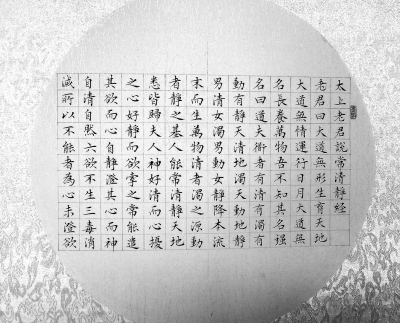 太上老君說常清靜經
老君曰大道無形生育天地
大道無情運行日月大道無
名長養萬物吾不知其名强
名曰道夫衜者有清有濁有
動有靜天清地濁天動地靜
男清女濁男動女靜降本流
末而生萬物清者濁之源動
者靜之基人能常清靜天地
悉皆歸夫人神好清而心擾
之心好靜而欲牽之常能遣
其欲而心自靜澄其心而神
自清自然六欲不生三毒消
滅所以不能者為心未澄欲